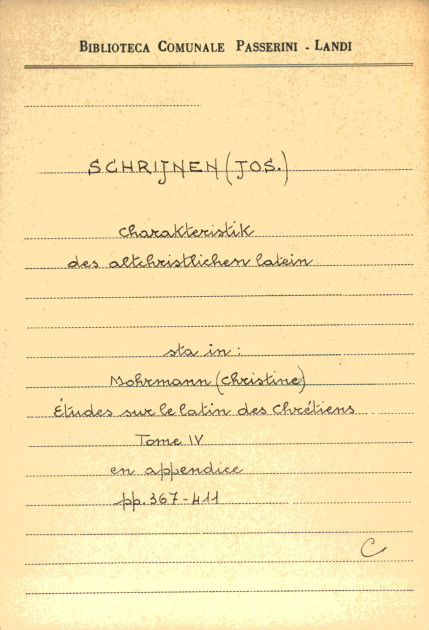 BIBLIOTECA COMUNALE PASSERINI - LANDI
SCHRIJNEN (JOS.)
Charakteristik
des altchristlichen latein
sta in:
Mohrmann (Christine)
Études sur le latin des Chrétiens
Tome IV
en appendice
pp. 367-411
C